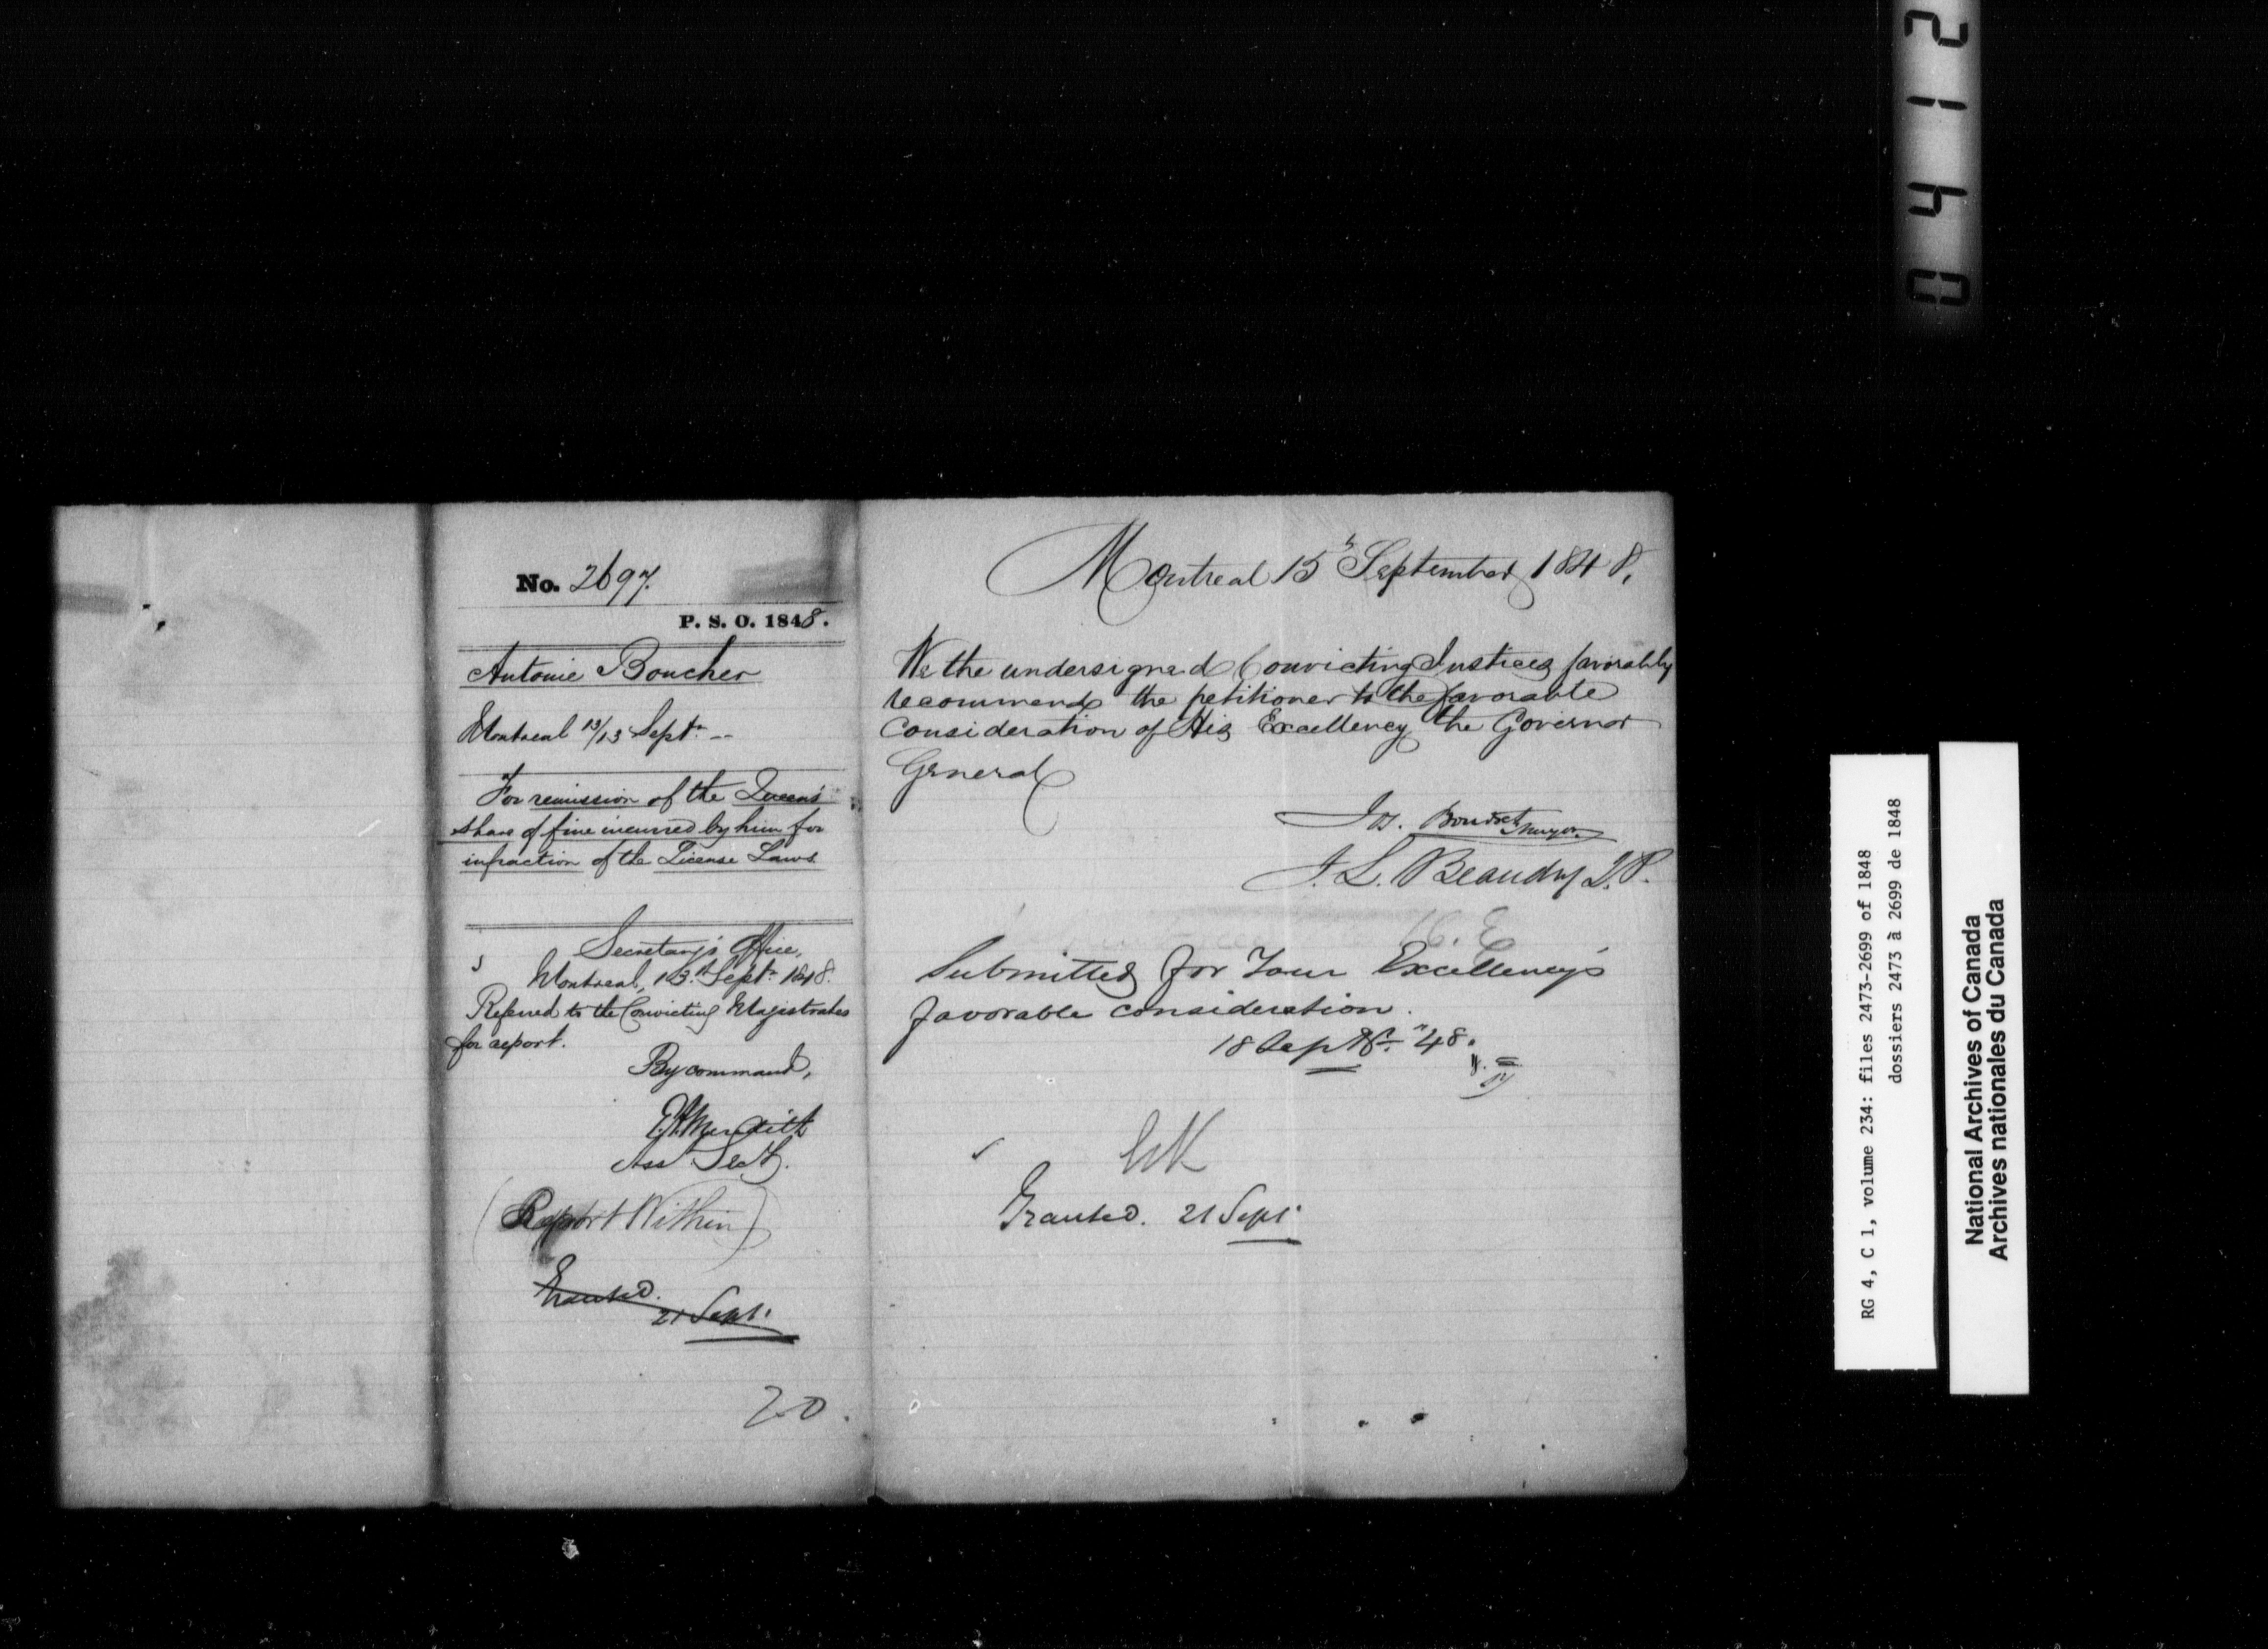 No. 2697.
P. S. O. 1848.
Antoine Boucher
Montreal 13/13 Sept. --
For remission of the Queen's
share of fine incurred by him for
infraction of the License Laws.
Secretary's Office,
Montreal, 13th Sept. 1848.
Referred to the Convicting Magistrates
for report.
By command,
E.A. Meredith
Asst Secy.
(Report Within)
Granted.
21 Sept.
20.
Montreal 15th September 1848,
We the undersigned Convicting Justices favorably
recommend the petitioner to the favorable
consideration of His Excellency the Governor
General
Jos. Bourret Mayor
J. L. Beaudry J.P.
Submitted for Your Excellency's
favorable consideration.
18 Septr. "48.
Granted. 21 Sept.
2140
RG 4, C 1, volume 234: files 2473-2699 of 1848
dossiers 2473 à 2699 de 1848
National Archives of Canada
Archives nationales du Canada